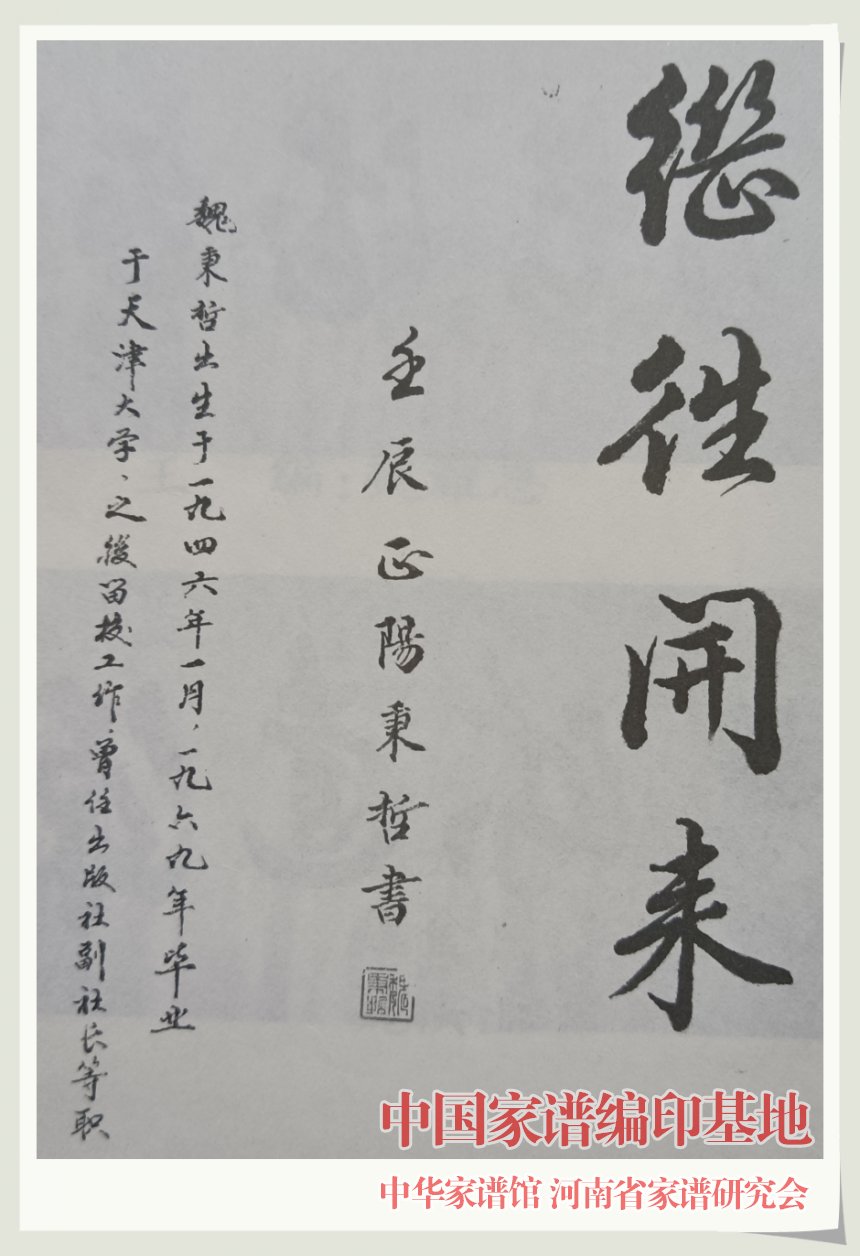 繼徃開来
壬辰正陽秉哲書
魏秉哲
魏秉哲出生于一九四六年一月，一九六九年毕业
于天津大学、之後留校工作，曾任出版社副社长等职
中国家谱编印基地
中华家谱馆 河南省家谱研究会